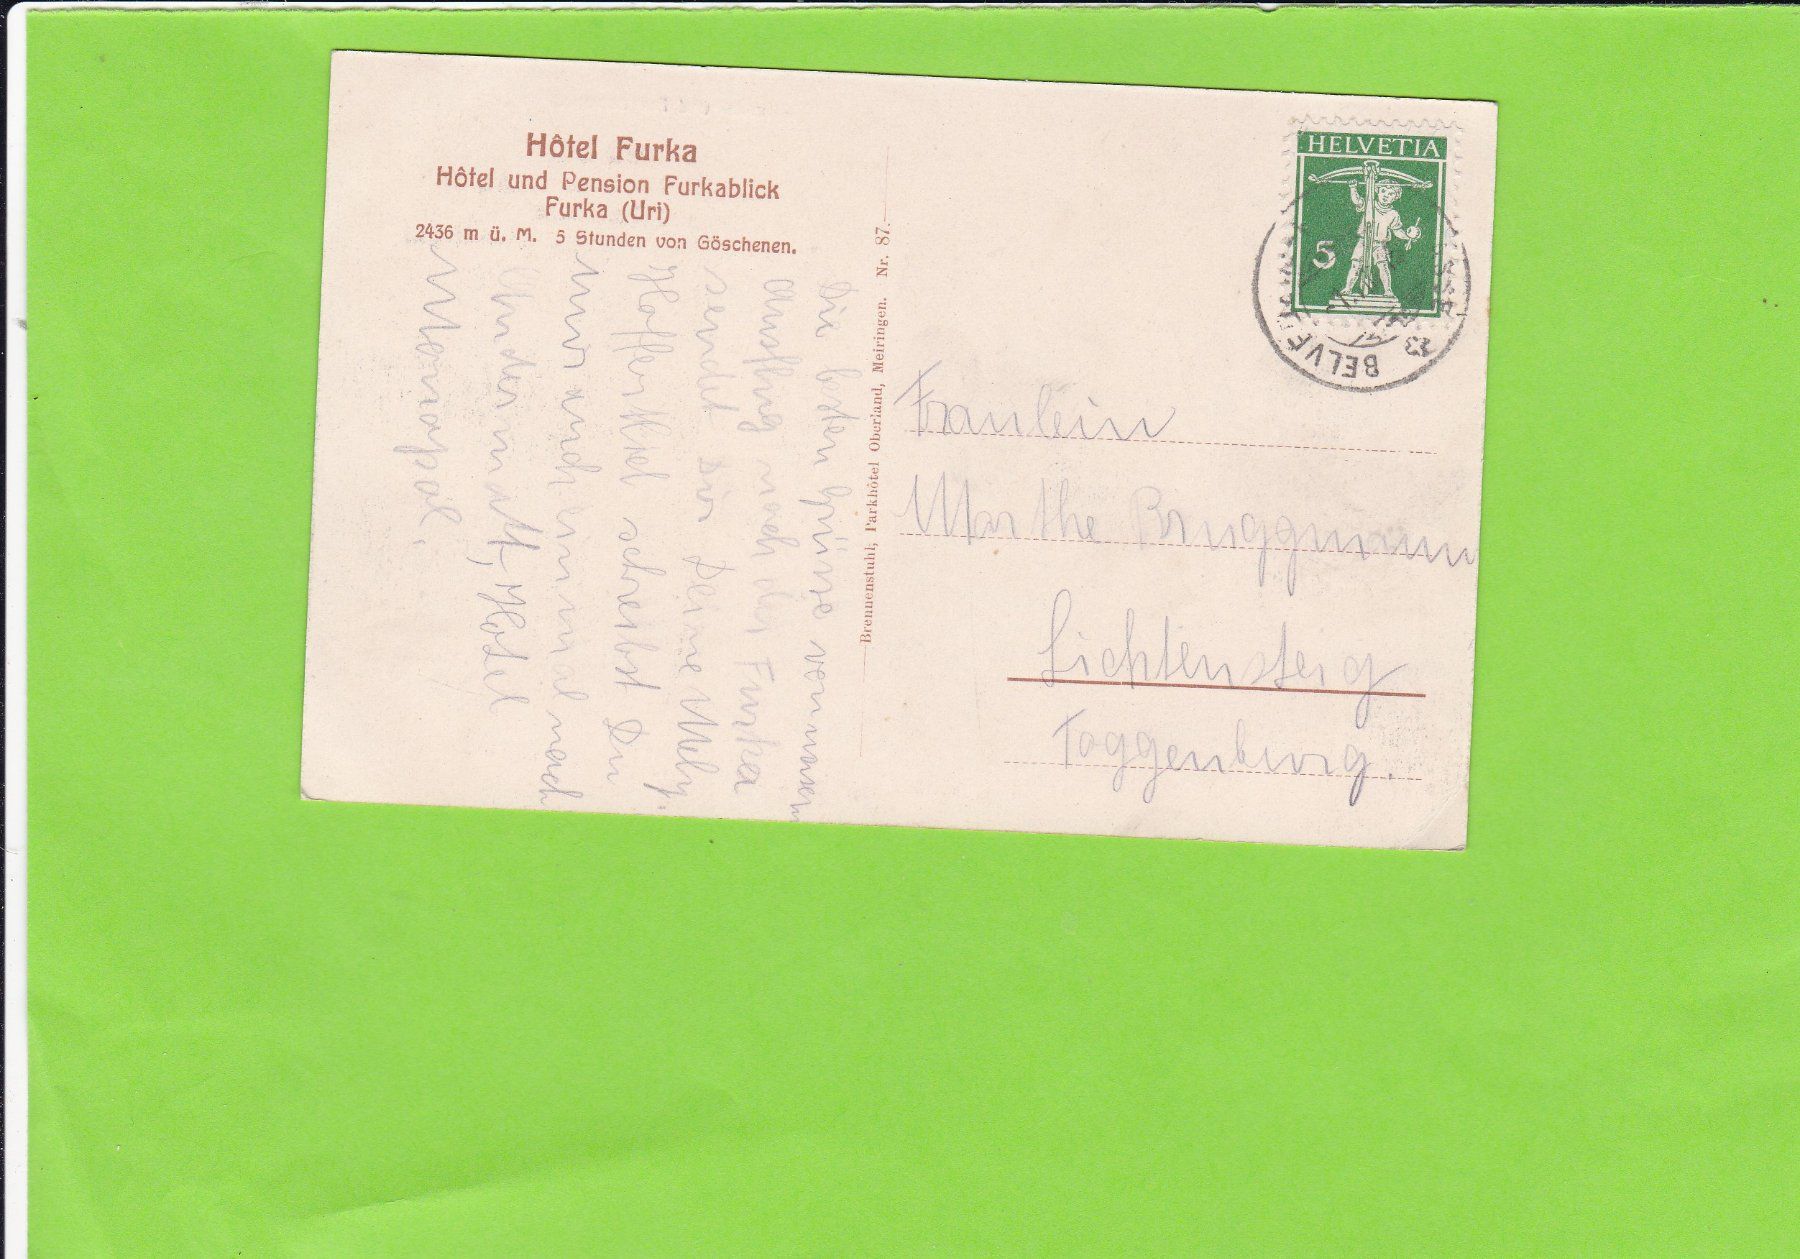 Hôtel Furka
Hôtel und Pension Furkablick
Furka (Uri)
2436 m ü. M. 5 Stunden von Göschenen.
Die besten Grüsse vom
Ausflug nach der Furka
sendet Dir Deine Mely.
Hoffentlich schreibst Du
mir auch einmal nach
Andermatt, Hotel
Monopol.
Brennenstuhl, Parkhôtel Oberland, Meiringen. Nr. 87.
HELVETIA
5
BELVE
Fraulein
Marthe Bruggmann
Lichtensteig
Toggenburg.